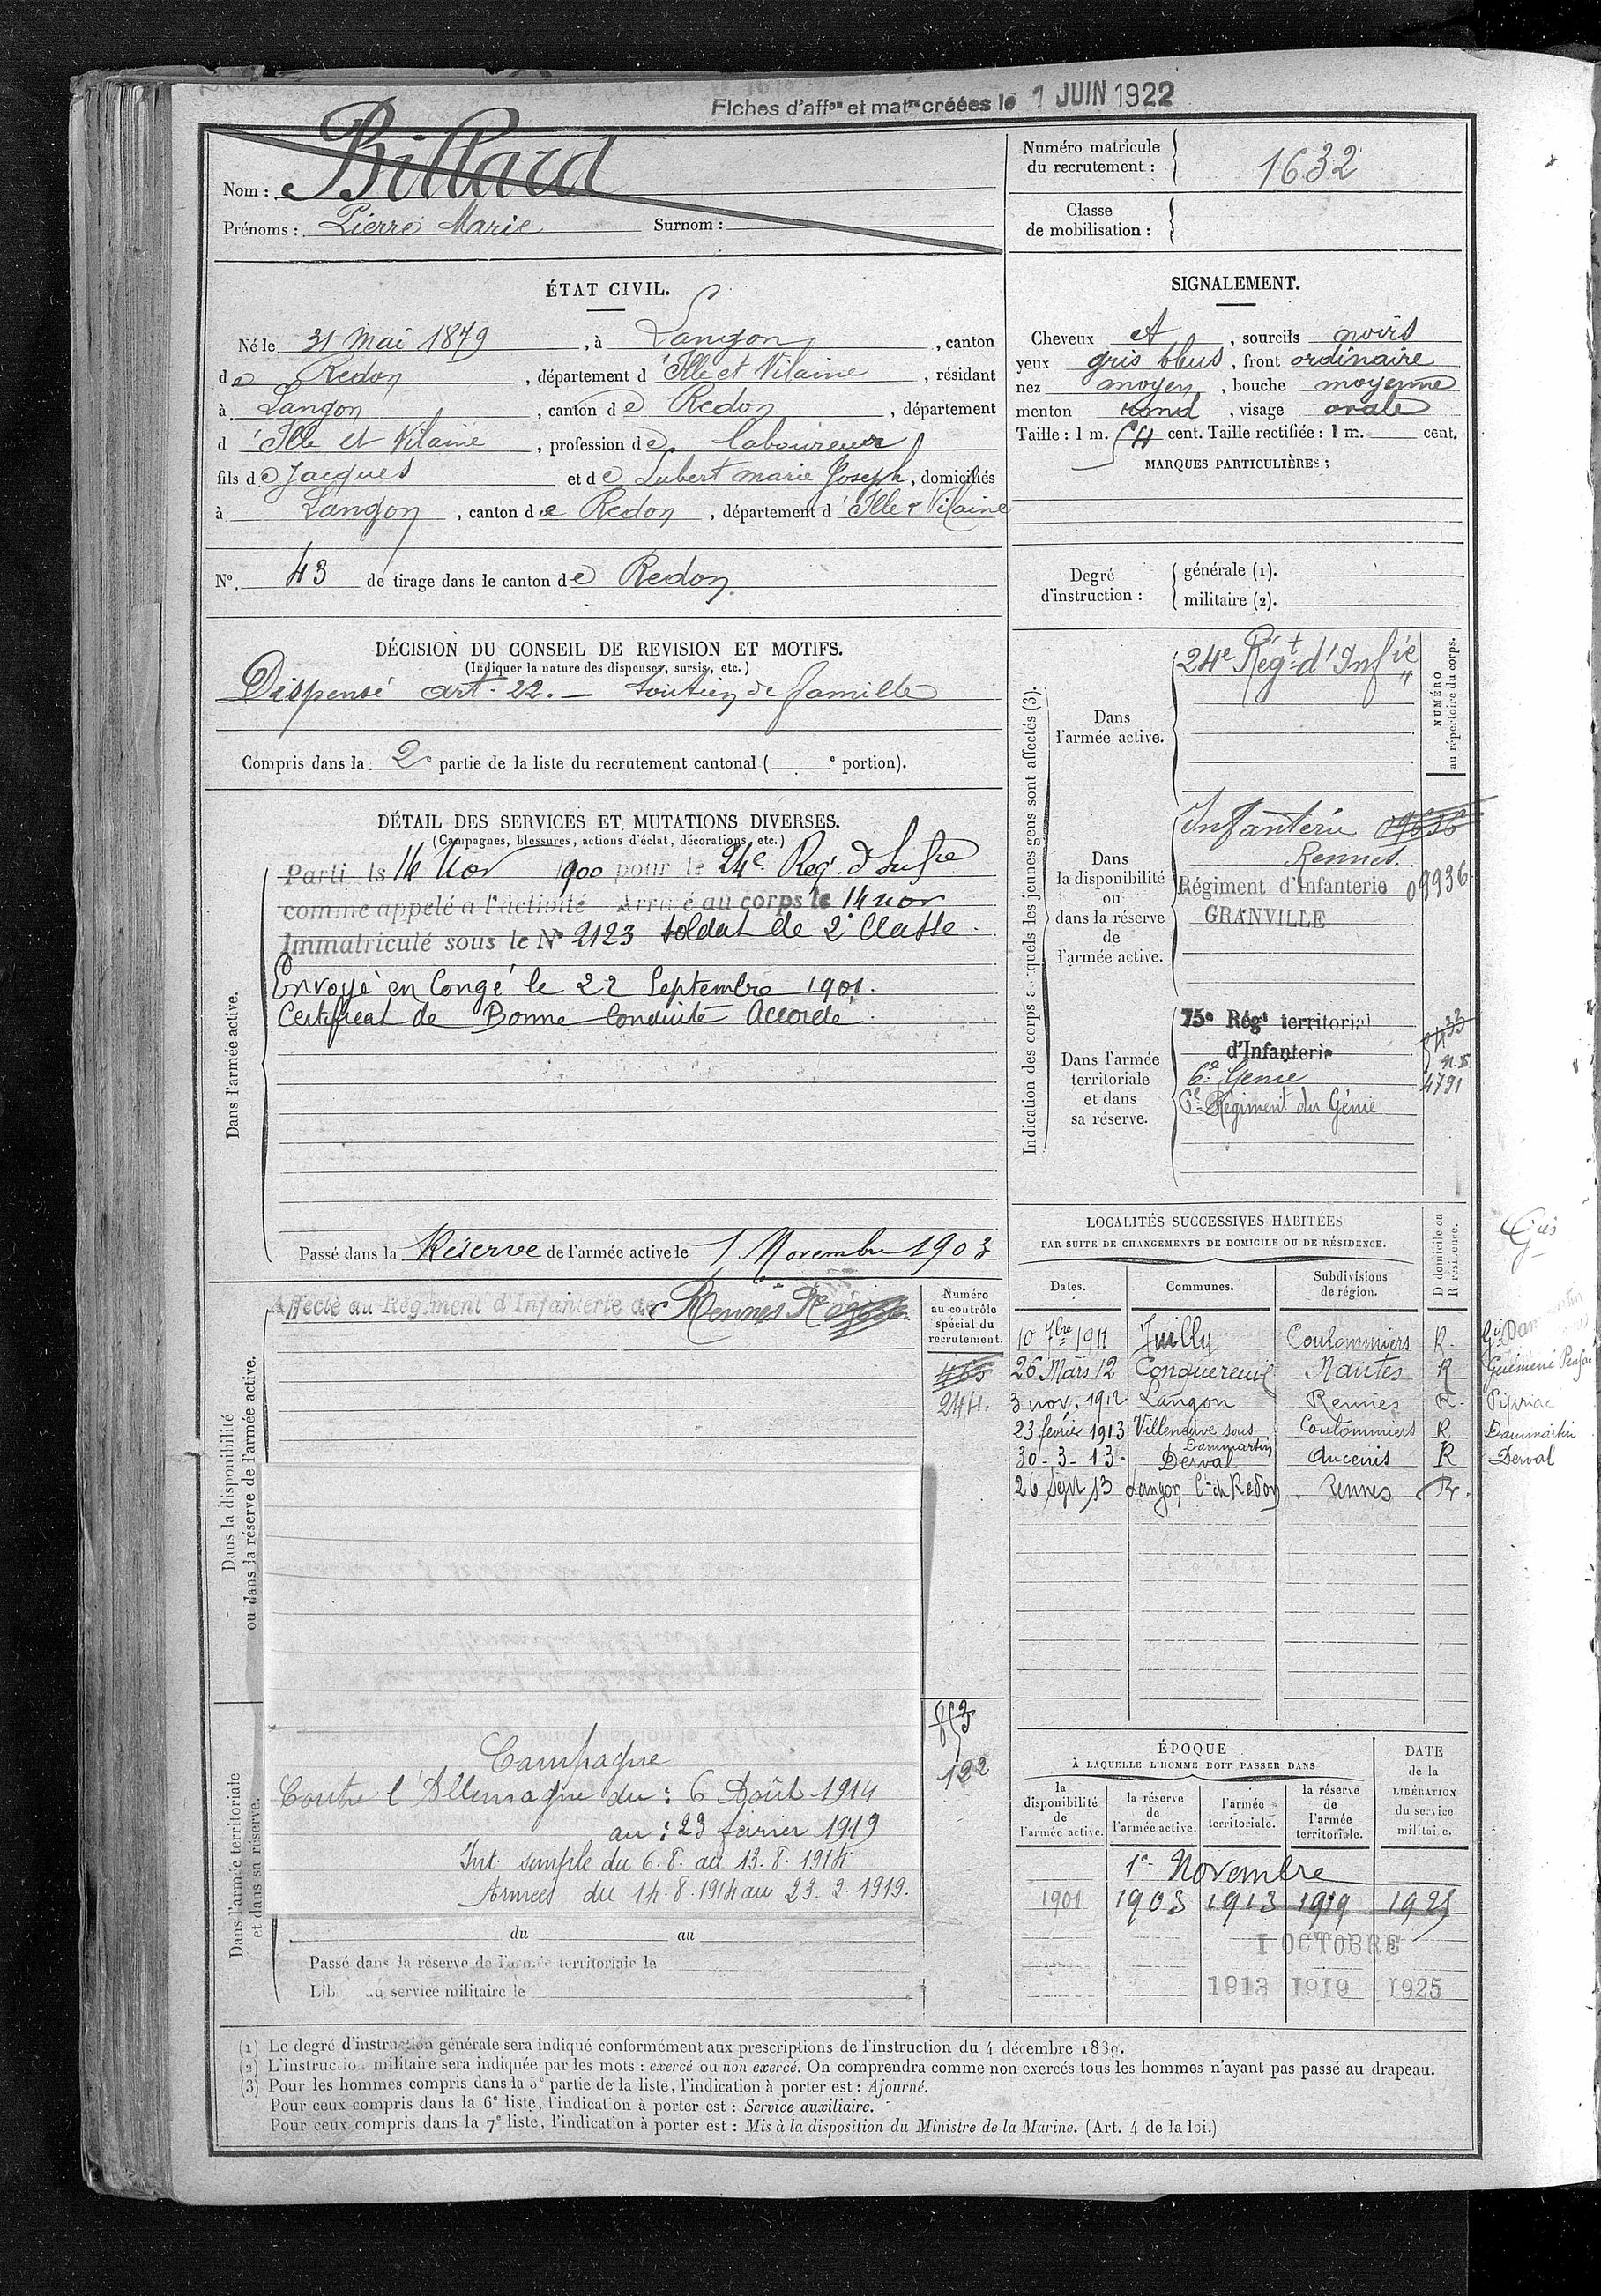 Fiches d'affon et matre créées le 1 JUIN 1922
Nom : Billard
Prénoms : Pierre Marie Surnom :
Numéro matricule du recrutement : 1632
Classe de mobilisation :
ÉTAT CIVIL.
Né le 31 Mai 1879, à Langon, canton
de Redon, département d'Ille et Vilaine, résidant
à Langon, canton de Redon, département
d'Ille et Vilaine, profession de laboureur
fils de Jacques et de Lubert marie Joseph, domiciliés
à Langon, canton de Redon, département d'Ille & Vilaine
N°. 43 de tirage dans le canton de Redon.
SIGNALEMENT.
Cheveux et, sourcils noirs
yeux gris bleus, front ordinaire
nez moyen, bouche moyenne
menton rond, visage ovale
Taille : 1 m. 54 cent. Taille rectifiée : 1 m. cent.
MARQUES PARTICULIÈRES :
Degré d'instruction : générale (1).
militaire (2).
DÉCISION DU CONSEIL DE REVISION ET MOTIFS.
(Indiquer la nature des dispenses, sursis, etc.)
Dispensé art. 22. — Soutien de famille
Compris dans la 2e partie de la liste du recrutement cantonal ( e portion).
DÉTAIL DES SERVICES ET MUTATIONS DIVERSES.
(Campagnes, blessures, actions d'éclat, décorations, etc.)
Dans l'armée active.
Parti le 14 Nov 1900 pour le 24e Reg. d'Infie
comme appelé à l'activité Arrivé au corps le 14 nov
Immatriculé sous le N° 2123 soldat de 2e Classe.
Envoyé en Congé le 22 Septembre 1901.
Certificat de Bonne Conduite Accordé.
Passé dans la Réserve de l'armée active le 1 Novembre 1903
Indication des corps auxquels les jeunes gens sont affectés (3).
NUMÉRO au répertoire du corps.
Dans l'armée active.
24e Régt d'Infie
Dans la disponibilité ou dans la réserve de l'armée active.
Infanterie
Rennes.
Régiment d'Infanterie 09936
GRANVILLE
Dans l'armée territoriale et dans sa réserve.
75e Régt territorial
d'Infanterie
6e Génie 4791
6e Régiment du Génie
Dans la disponibilité ou dans la réserve de l'armée active.
Affecté au Régiment d'Infanterie de Rennes
Numéro au contrôle spécial du recrutement.
465
244.
LOCALITÉS SUCCESSIVES HABITÉES
PAR SUITE DE CHANGEMENTS DE DOMICILE OU DE RÉSIDENCE.
Dates. Communes. Subdivisions de région. D domicile ou R résidence.
10 7bre 1911 Juilly Coulommiers R.
26 Mars 12 Conquereuil Nantes R Guémené Penfao
3 nov. 1912 Langon Rennes R. Pipriac
23 février 1913 Villeneuve sous Dammartin Coulommiers R Dammartin
30-3-13. Derval Ancenis R Derval
26 Sept 13 Langon Con de Redon Rennes R.
Dans l'armée territoriale et dans sa réserve.
122
Campagne
Contre l'Allemagne du : 6 Août 1914
au : 23 février 1919
Int. simple du 6.8. au 13.8.1914
Armées du 14.8.1914 au 23.2.1919.
du au
Passé dans la réserve de l'armée territoriale le
Libéré du service militaire le
ÉPOQUE
À LAQUELLE L'HOMME DOIT PASSER DANS
la disponibilité de l'armée active.
la réserve de l'armée active.
l'armée territoriale.
la réserve de l'armée territoriale.
DATE de la LIBÉRATION du service militaire.
1er Novembre
1901 1903 1913 1919 1925
1 OCTOBRE
1913 1919 1925
(1) Le degré d'instruction générale sera indiqué conformément aux prescriptions de l'instruction du 4 décembre 1889.
(2) L'instruction militaire sera indiquée par les mots : exercé ou non exercé. On comprendra comme non exercés tous les hommes n'ayant pas passé au drapeau.
(3) Pour les hommes compris dans la 5e partie de la liste, l'indication à porter est : Ajourné.
Pour ceux compris dans la 6e liste, l'indication à porter est : Service auxiliaire.
Pour ceux compris dans la 7e liste, l'indication à porter est : Mis à la disposition du Ministre de la Marine. (Art. 4 de la loi.)